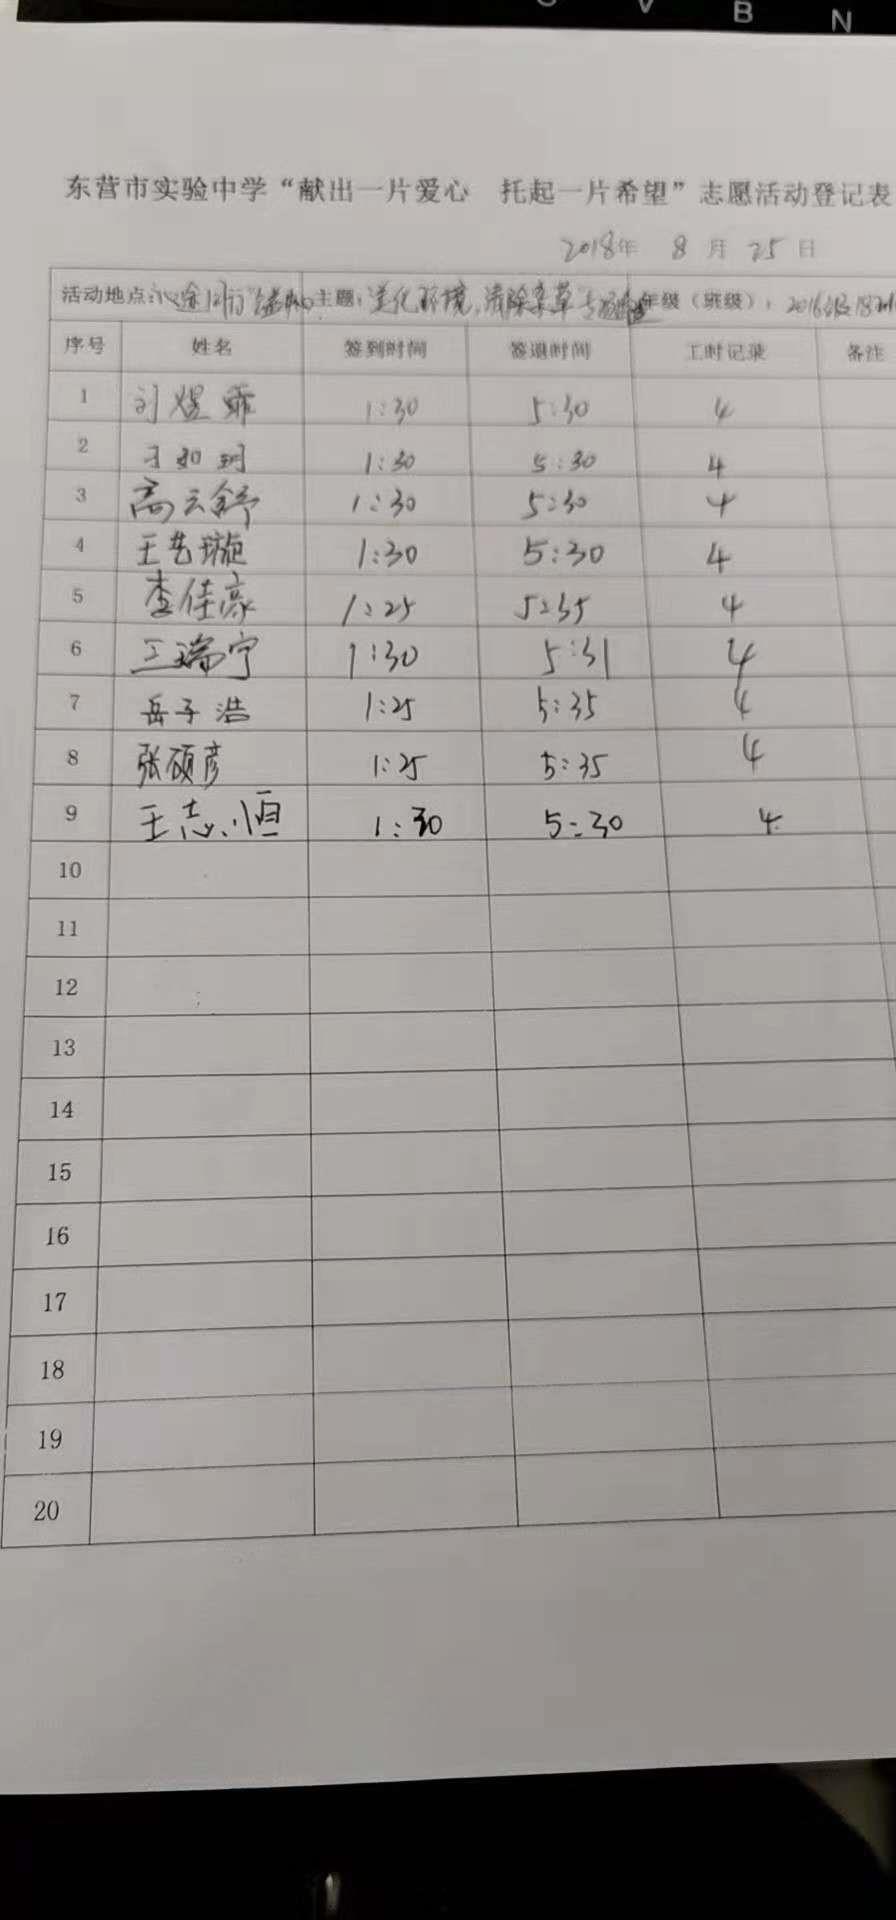 V B N
东营市实验中学“献出一片爱心 托起一片希望”志愿活动登记表
2018年 8月 25日
活动地点: 主题: 美化环境,清除杂草 年级(班级): 2016级18班
序号 姓名 签到时间 签退时间 工时记录 备注
1 刘煜 1:30 5:30 4
2 1:30 5:30 4
3 高云舒 1:30 5:30 4
4 王艺璇 1:30 5:30 4
5 李佳豪 1:25 5:35 4
6 王瑞宁 1:30 5:31 4
7 岳子浩 1:25 5:35 4
8 张硕彦 1:25 5:35 4
9 王志恒 1:30 5:30 4
10
11
12
13
14
15
16
17
18
19
20